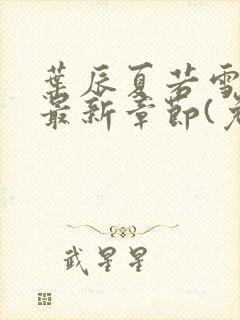 葉辰夏若雪
最新章節(
武星星